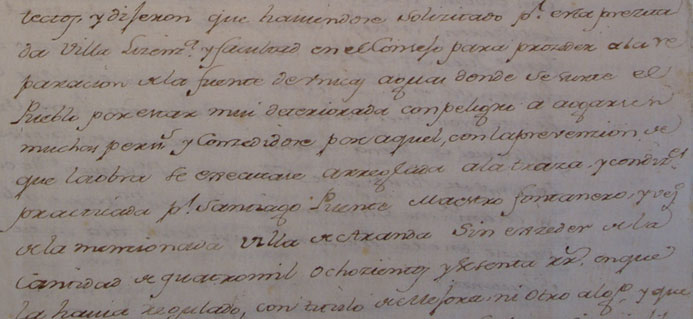 y dijeron que haviendose solizitado p.r esta prezita
da Villa Lizem.a y facultad en el Consejo para prozeder a la re
parazion de la fuente de aguas donde se surte el
Pueblo por estar mui deteriorada con peligro a
muchos y Conzedidose por aquel, con la prevenzion de
que la obra se executase arreglada a la traza y condiz.s
practicada p.r Santiago Puente Maestro fontanero y vez.o
de la menzionada Villa de Aranda sin exzeder de la
Cantidad de quatro mil Ochozientos y sesenta rr.s en que
la havia regulado, con titulo de Mejora ni otro alg.o y que